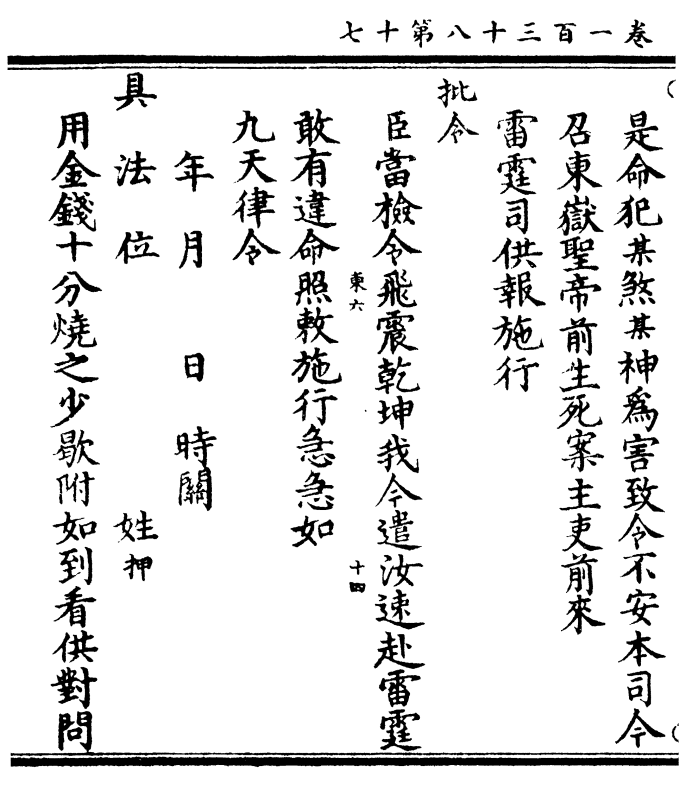 卷一百三十八第十七
是命犯某煞某神爲害致令不安本司今
召東嶽聖帝前生死案主吏前來
雷霆司供報施行
批令
臣當檢令飛震乾坤我今遣汝速赴雷霆
東六
十四
敢有違命照敕施行急急如
九天律令
年月日時關
具法位姓押
用金錢十分燒之少歇附如到看供對問